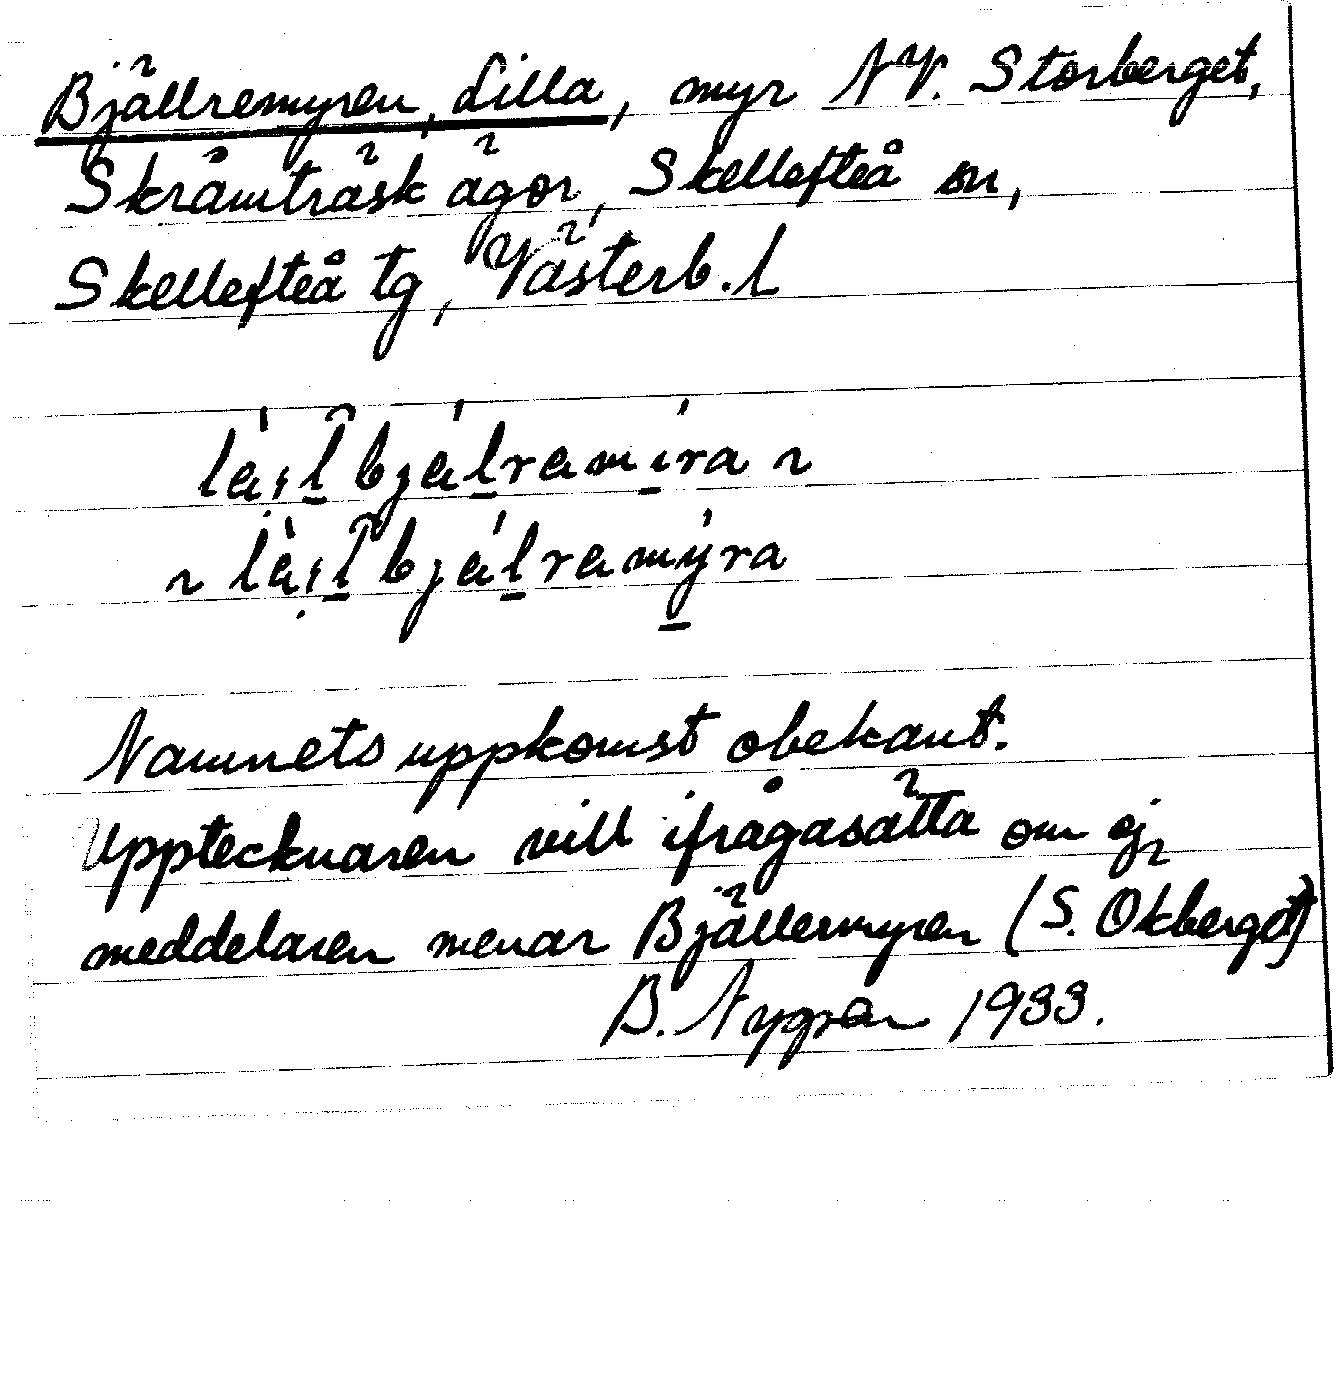 Bjällremyren, Lilla, myr NV. Storberget,
Skråmträsk ägor, Skellefteå sn,
Skellefteå tg, Västerb. l
Namnets uppkomst obekant.
Upptecknaren vill ifrågasätta om ej
meddelaren menar Bjällermyren (S. Okberget)
B. Nygren 1933.